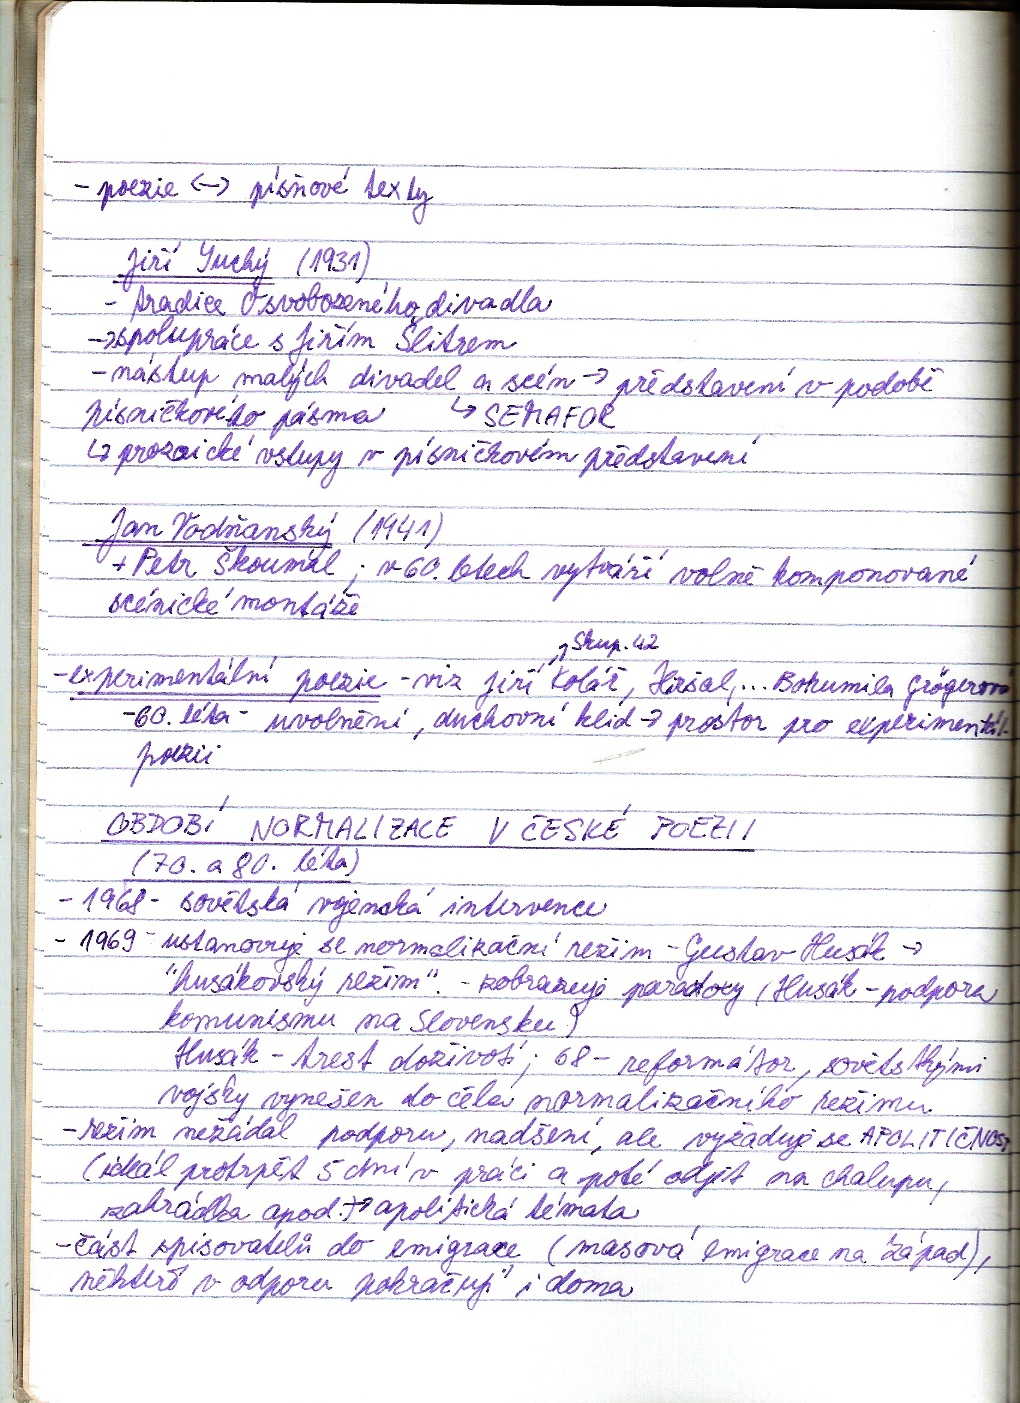 - poezie <-> písňové texty
Jiří Suchý (1931)
- tradice Osvobozeného divadla
-> spolupráce s Jiřím Šlitrem
- nástup malých divadel a scén -> představení v podobě
písničkového pásma ↳ SEMAFOR
↳ prozaické vstupy v písničkovém představení
Jan Vodňanský (1941)
+ Petr Skoumal; v 60. letech vytváří volně komponované
scénické montáže
↗ Skup. 42
- experimentální poezie - viz Jiří Kolář, Hiršal,... Bohumila Grögerová
- 60. léta - uvolnění, duchovní klid -> prostor pro experimentál.
poezii
OBDOBÍ NORMALIZACE V ČESKÉ POEZII
(70. a 80. léta)
- 1968 - sovětská vojenská intervence
- 1969 - ustanovuje se normalizační režim - Gustav Husák ->
"husákovský režim". - zobrazuje paradoxy (Husák - podpora
komunismu na Slovensku)
Husák - trest doživotí; 68 - reformátor, sovětskými
vojsky vynešen do čela normalizačního režimu
- režim nežádal podporu, nadšení, ale vyžaduje se APOLITIČNOST
(ideál protrpět 5 dní v práci a poté odjet na chalupu,
zahrádka apod.) -> apolitická témata
- část spisovatelů do emigrace (masová emigrace na Západ),
někteří v odporu pokračují i doma